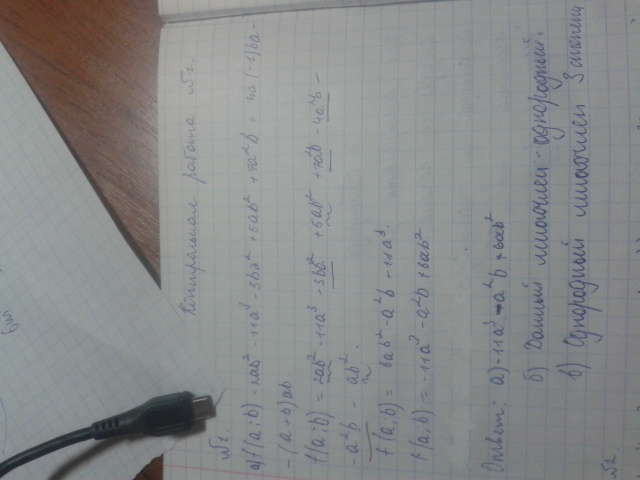 Контрольная работа №1.
№1.
а) f(a;b) - 2ab² - 11a³ - 3ba² + 5ab² + 7a²b + 4a(-1)ba -
- (a+b)ab
f(a;b) = 2ab² - 11a³ - 3ba² + 5ab² + 7a²b - 4a²b -
- a²b - ab².
f(a,b) = 6ab² - a²b - 11a³.
f(a,b) = -11a³ - a²b + 6ab²
Ответ: а) -11a³ - a²b + 6ab²
б) Данный многочлен - однородный.
в) Однородный многочлен 3 степени
№2.